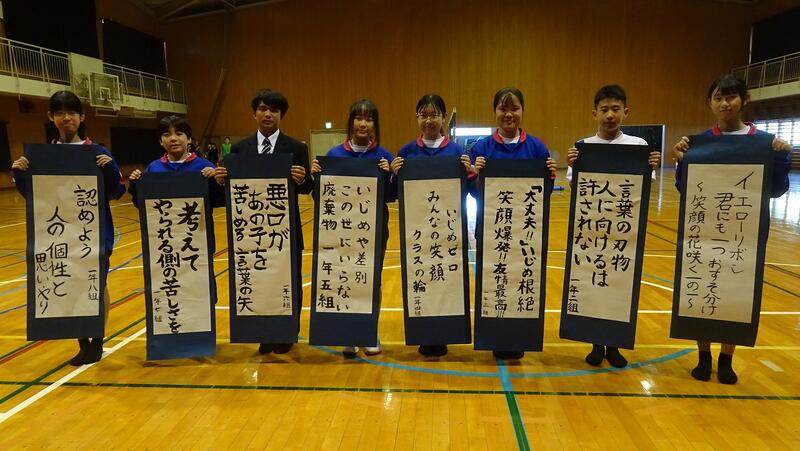 イエローリボン
君にも一つおすそ分け
～笑顔の花咲く一の一～
言葉の刃物
人に向けるは
許されない
一年二組
「大丈夫!!」いじめ根絶
笑顔爆発!!友情最高!!!
一年三組
いじめゼロ
みんなの笑顔
クラスの輪 一年四組
いじめや差別
この世にいらない
廃棄物 一年五組
悪口が
あの子を
苦しめる言葉の矢
一年六組
考えて
やられる側の苦しさを
一年七組
認めよう
人の個性と
思いやり
一年八組